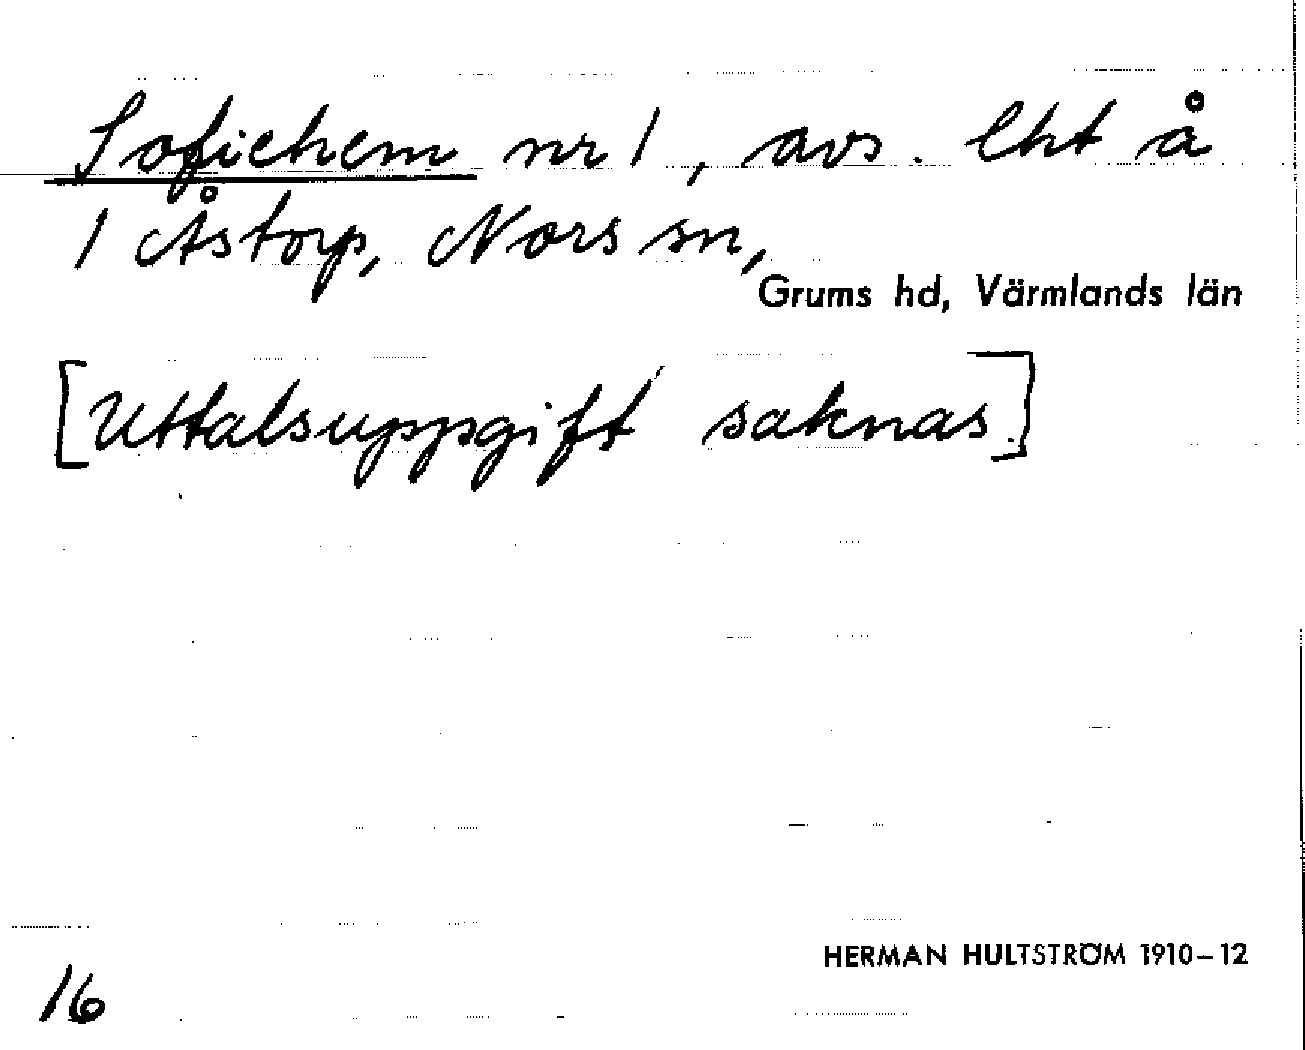 Sofiehem nr 1, avs. lht å
1 Åstorp, Nors sn,
Grums hd, Värmlands län
[Uttalsuppgift saknas]
HERMAN HULTSTRÖM 1910–12
16